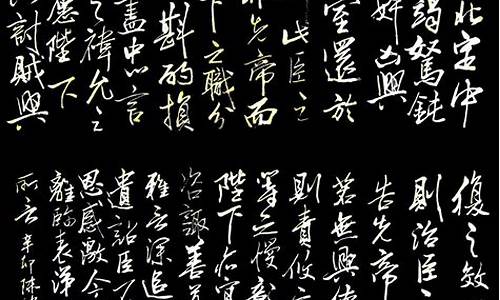 北定中
竭駑鈍
奸凶興
室還於
此臣之
先帝而
下之職分
斟酌損
盡忠言
之禕允之
應陛下
討賊興
復之效
則治臣
告先帝
若無興德
則責攸之
等之慢
陛下亦宜
咨諏善
雅言深追
遺詔臣不
恩感激今
離臨表涕
所云 辛卯